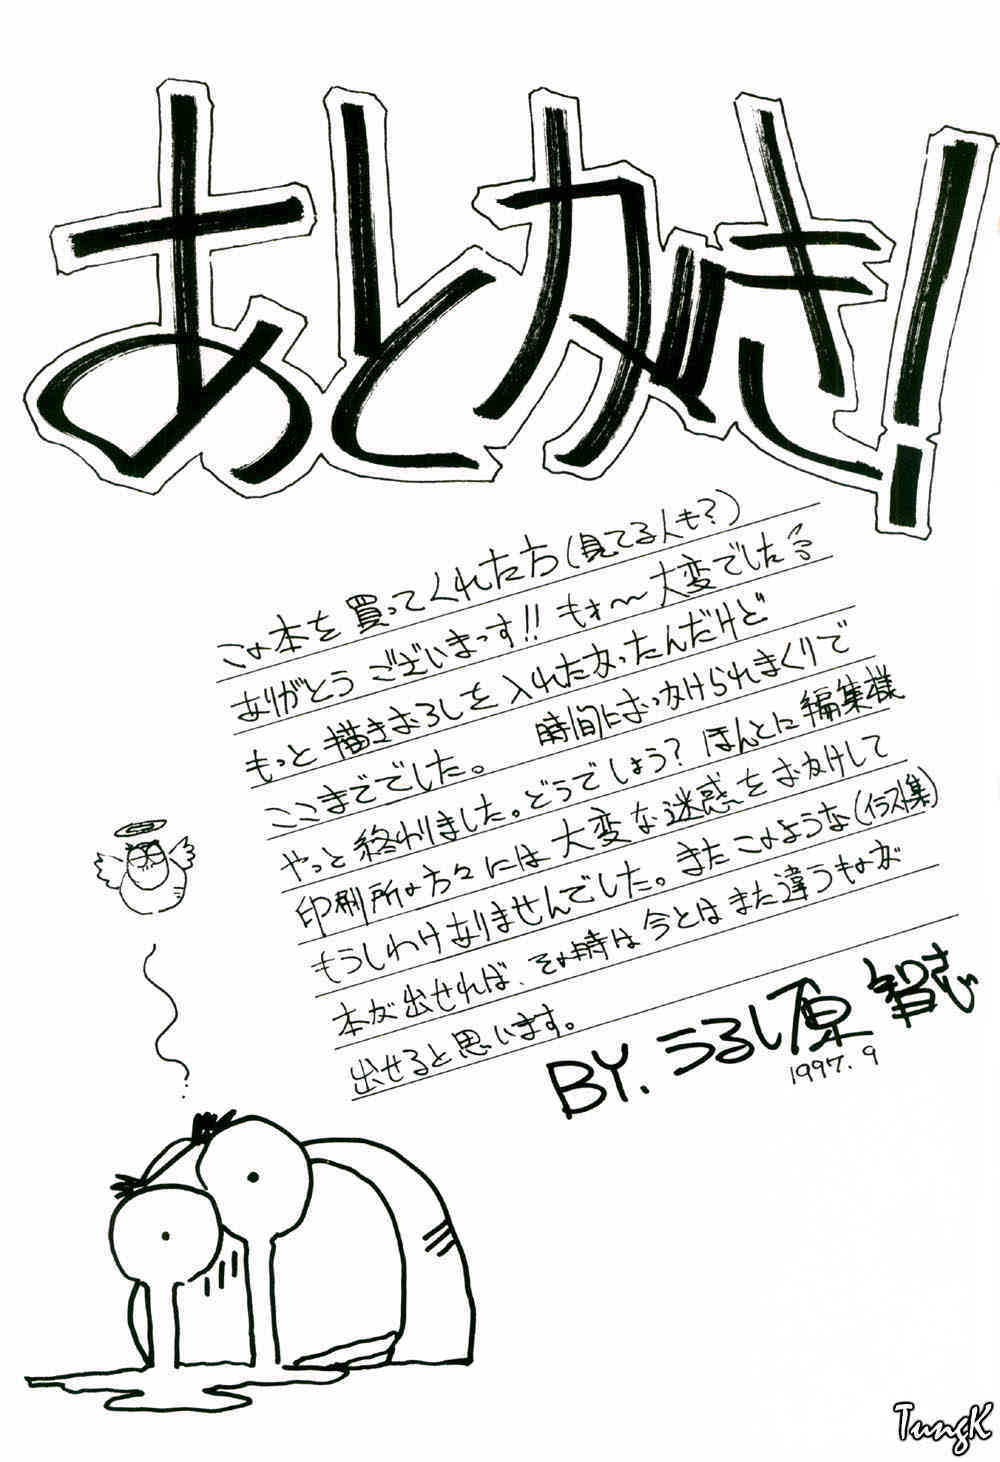 あとがき!
この本を買ってくれた方(見てる人も?)
ありがとうございまっす!!もォ〜大変でした
もっと描きおろしを入れたかったんだけど
ここまででした。時間におっかけられまくりで
やっと終わりました。どうでしょう?ほんとに編集様
印刷所の方々には大変な迷惑をおかけして
もうしわけありませんでした。またこのような(イラスト集)
本が出せれば、その時は今とはまた違うものが
出せると思います。
BY.うるし原智志
1997.9
TungK